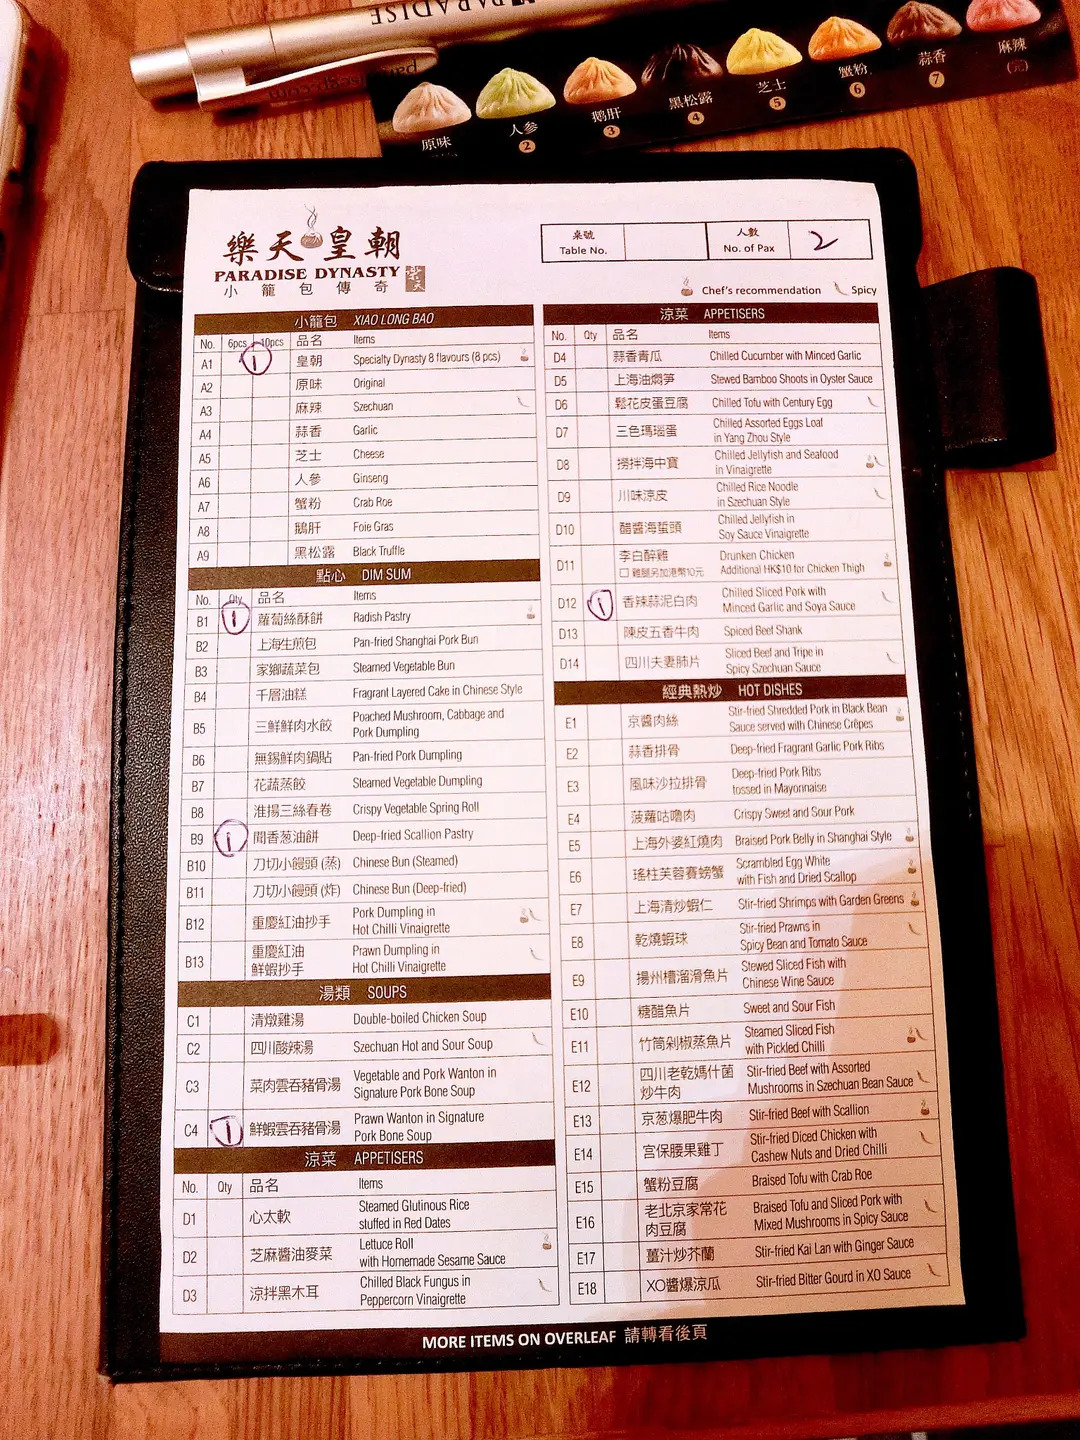 PARADISE
原味
人参
2
鹅肝
3
黑松露
4
芝士
5
蟹粉
6
蒜香
7
麻辣
樂天皇朝
PARADISE DYNASTY
小籠包傳奇
桌號
Table No.
人數
No. of Pax
2
Chef's recommendation
Spicy
小籠包 XIAO LONG BAO
No. 6pcs 10pcs 品名 Items
A1 1 皇朝 Specialty Dynasty 8 flavours (8 pcs)
A2 原味 Original
A3 麻辣 Szechuan
A4 蒜香 Garlic
A5 芝士 Cheese
A6 人參 Ginseng
A7 蟹粉 Crab Roe
A8 鵝肝 Foie Gras
A9 黑松露 Black Truffle
點心 DIM SUM
No. Qty 品名 Items
B1 1 蘿蔔絲酥餅 Radish Pastry
B2 上海生煎包 Pan-fried Shanghai Pork Bun
B3 家鄉蔬菜包 Steamed Vegetable Bun
B4 千層油糕 Fragrant Layered Cake in Chinese Style
B5 三鮮鮮肉水餃 Poached Mushroom, Cabbage and
Pork Dumpling
B6 無錫鮮肉鍋貼 Pan-fried Pork Dumpling
B7 花蔬蒸餃 Steamed Vegetable Dumpling
B8 淮揚三絲春卷 Crispy Vegetable Spring Roll
B9 1 聞香葱油餅 Deep-fried Scallion Pastry
B10 刀切小饅頭 (蒸) Chinese Bun (Steamed)
B11 刀切小饅頭 (炸) Chinese Bun (Deep-fried)
B12 重慶紅油抄手 Pork Dumpling in
Hot Chilli Vinaigrette
B13 重慶紅油 Prawn Dumpling in
鮮蝦抄手 Hot Chilli Vinaigrette
湯類 SOUPS
C1 清燉雞湯 Double-boiled Chicken Soup
C2 四川酸辣湯 Szechuan Hot and Sour Soup
C3 菜肉雲吞豬骨湯 Vegetable and Pork Wanton in
Signature Pork Bone Soup
C4 1 鮮蝦雲吞豬骨湯 Prawn Wanton in Signature
Pork Bone Soup
涼菜 APPETISERS
No. Qty 品名 Items
D1 心太軟 Steamed Glutinous Rice
stuffed in Red Dates
D2 芝麻醬油麥菜 Lettuce Roll
with Homemade Sesame Sauce
D3 涼拌黑木耳 Chilled Black Fungus in
Peppercorn Vinaigrette
涼菜 APPETISERS
No. Qty 品名 Items
D4 蒜香青瓜 Chilled Cucumber with Minced Garlic
D5 上海油燜笋 Stewed Bamboo Shoots in Oyster Sauce
D6 鬆花皮蛋豆腐 Chilled Tofu with Century Egg
D7 三色瑪瑙蛋 Chilled Assorted Eggs Loaf
in Yang Zhou Style
D8 撈拌海中寶 Chilled Jellyfish and Seafood
in Vinaigrette
D9 川味涼皮 Chilled Rice Noodle
in Szechuan Style
D10 醋醬海蜇頭 Chilled Jellyfish in
Soy Sauce Vinaigrette
D11 李白醉雞 Drunken Chicken
□ 雞腿另加港幣10元 Additional HK$10 for Chicken Thigh
D12 1 香辣蒜泥白肉 Chilled Sliced Pork with
Minced Garlic and Soya Sauce
D13 陳皮五香牛肉 Spiced Beef Shank
D14 四川夫妻肺片 Sliced Beef and Tripe in
Spicy Szechuan Sauce
經典熱炒 HOT DISHES
E1 京醬肉絲 Stir-fried Shredded Pork in Black Bean
Sauce served with Chinese Crêpes
E2 蒜香排骨 Deep-fried Fragrant Garlic Pork Ribs
E3 風味沙拉排骨 Deep-fried Pork Ribs
tossed in Mayonnaise
E4 菠蘿咕嚕肉 Crispy Sweet and Sour Pork
E5 上海外婆紅燒肉 Braised Pork Belly in Shanghai Style
E6 瑤柱芙蓉賽螃蟹 Scrambled Egg White
with Fish and Dried Scallop
E7 上海清炒蝦仁 Stir-fried Shrimps with Garden Greens
E8 乾燒蝦球 Stir-fried Prawns in
Spicy Bean and Tomato Sauce
E9 揚州槽溜滑魚片 Stewed Sliced Fish with
Chinese Wine Sauce
E10 糖醋魚片 Sweet and Sour Fish
E11 竹筒剁椒蒸魚片 Steamed Sliced Fish
with Pickled Chilli
E12 四川老乾媽什菌 Stir-fried Beef with Assorted
炒牛肉 Mushrooms in Szechuan Bean Sauce
E13 京葱爆肥牛肉 Stir-fried Beef with Scallion
E14 宮保腰果雞丁 Stir-fried Diced Chicken with
Cashew Nuts and Dried Chilli
E15 蟹粉豆腐 Braised Tofu with Crab Roe
E16 老北京家常花 Braised Tofu and Sliced Pork with
肉豆腐 Mixed Mushrooms in Spicy Sauce
E17 薑汁炒芥蘭 Stir-fried Kai Lan with Ginger Sauce
E18 XO醬爆涼瓜 Stir-fried Bitter Gourd in XO Sauce
MORE ITEMS ON OVERLEAF 請轉看後頁